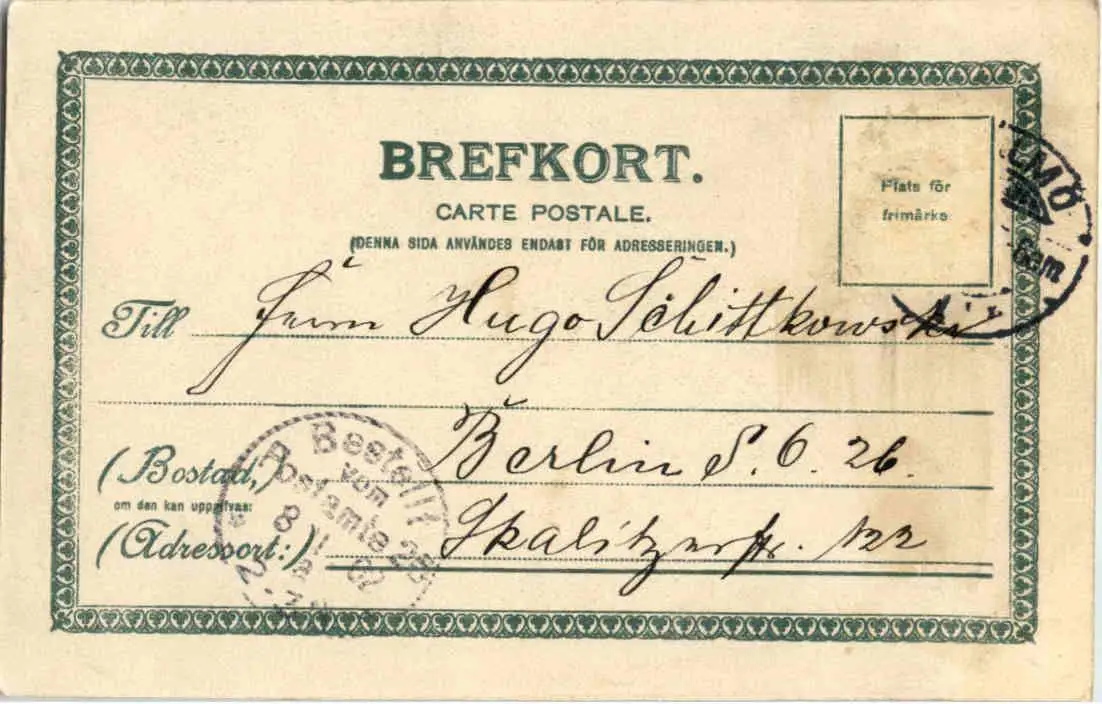 BREFKORT.
CARTE POSTALE.
(DENNA SIDA ANVÄNDES ENDAST FÖR ADRESSERINGEN.)
Plats för
frimärke
LMÖ
Till Herrn Hugo Schittkowski
Berlin S. O. 26.
(Bostad,)
om den kan uppgifvas:
(Adressort:) Skalitzerstr. 122
Bestellt
vom
Postamte
8 1 07